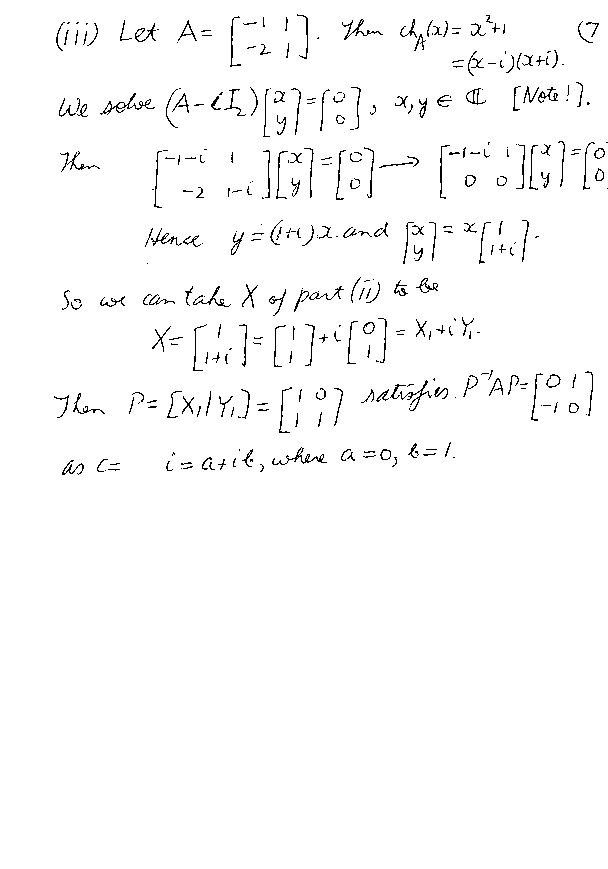 (iii) Let A = [-1 1; -2 1]. Then ch_A(x) = x²+1 (7
= (x-i)(x+i).
We solve (A-iI₂)[x; y] = [0; 0], x, y ∈ ℂ [Note!].
Then [-1-i 1; -2 1-i][x; y] = [0; 0] → [-1-i 1; 0 0][x; y] = [0; 0
Hence y = (1+i)x and [x; y] = x[1; 1+i].
So we can take X of part (ii) to be
X = [1; 1+i] = [1; 1] + i[0; 1] = X₁+iY₁.
Then P = [X₁|Y₁] = [1 0; 1 1] satisfies P⁻¹AP = [0 1; -1 0]
as c = i = a+ib, where a=0, b=1.